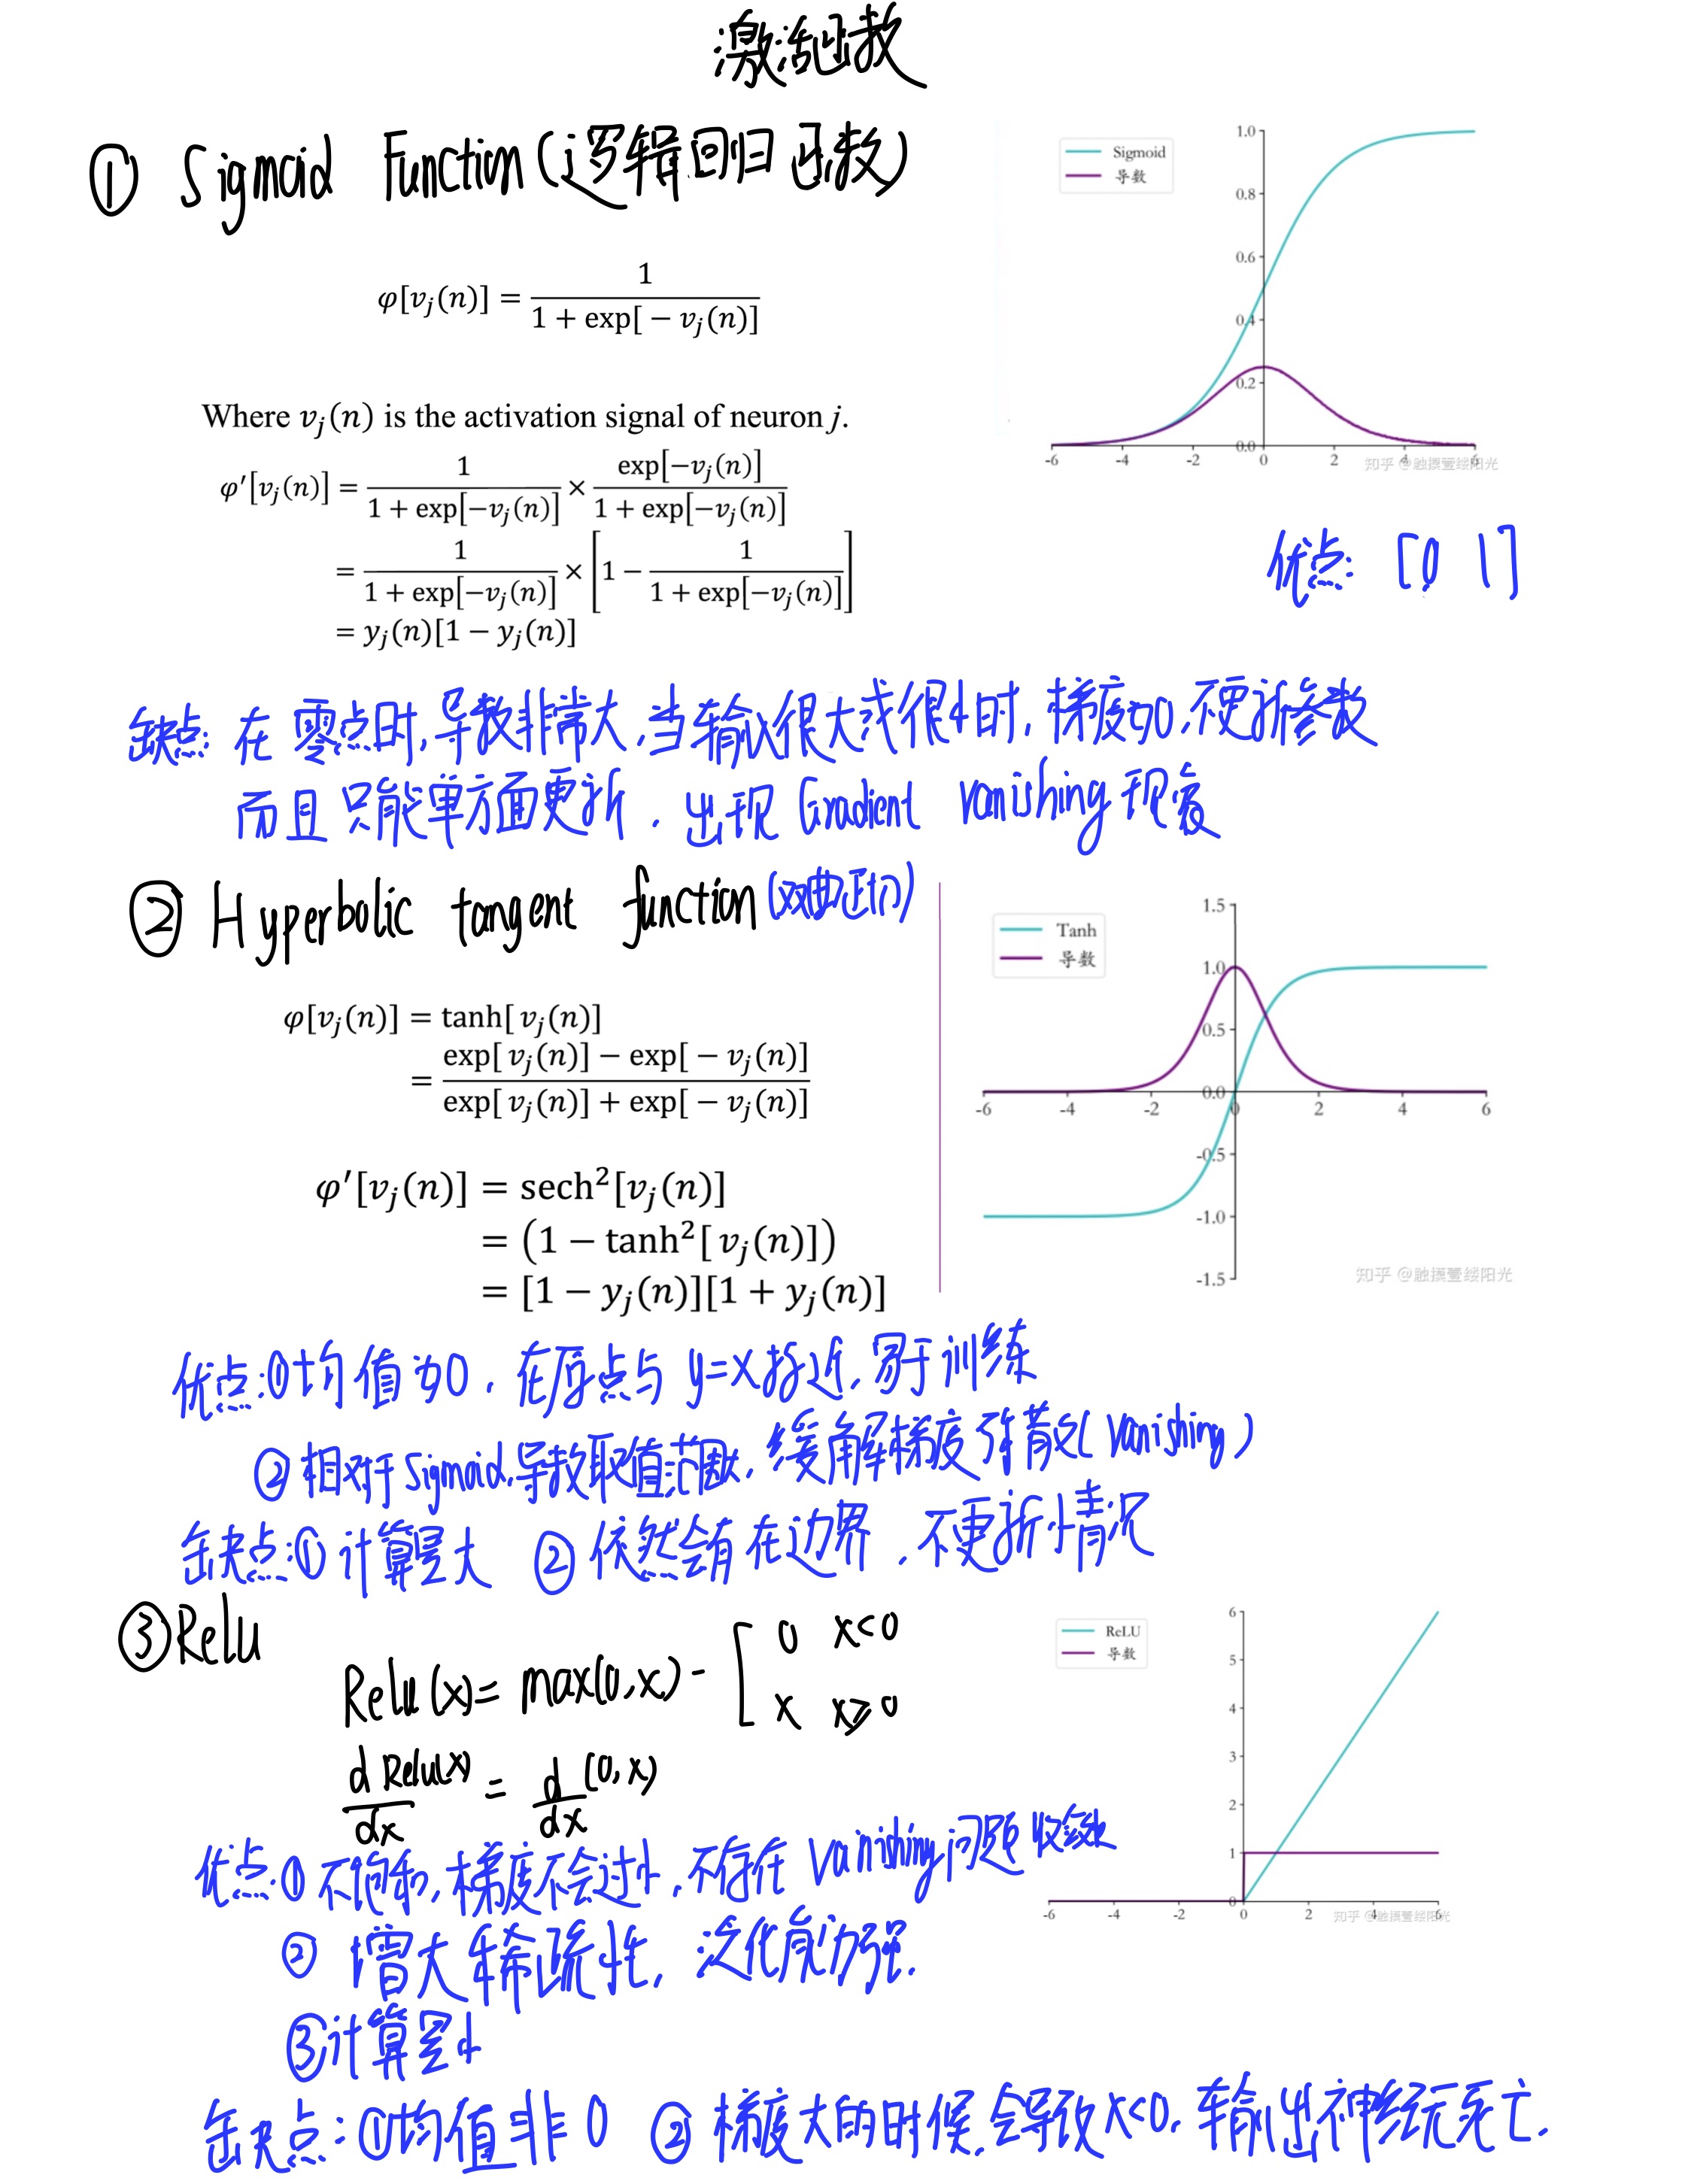 激活函数
① Sigmoid Function (逻辑回归函数)
Sigmoid
导数
1.0
0.8
0.6
0.4
0.2
0.0
-6 -4 -2 0 2 4 6
知乎 @触摸壹缕阳光
φ[vⱼ(n)] = 1 / (1 + exp[ − vⱼ(n)])
Where vⱼ(n) is the activation signal of neuron j.
φ′[vⱼ(n)] = 1 / (1 + exp[−vⱼ(n)]) × exp[−vⱼ(n)] / (1 + exp[−vⱼ(n)])
= 1 / (1 + exp[−vⱼ(n)]) × [1 − 1 / (1 + exp[−vⱼ(n)])]
= yⱼ(n)[1 − yⱼ(n)]
优点: [0 1]
缺点: 在零点时, 导数非常大, 当输入很大或很小时, 梯度为0, 不更新参数
而且只能单方面更新, 出现 Gradient vanishing 现象
② Hyperbolic tangent function (双曲正切)
Tanh
导数
1.5
1.0
0.5
0.0
-0.5
-1.0
-1.5
-6 -4 -2 0 2 4 6
知乎 @触摸壹缕阳光
φ[vⱼ(n)] = tanh[ vⱼ(n)]
= (exp[ vⱼ(n)] − exp[ − vⱼ(n)]) / (exp[ vⱼ(n)] + exp[ − vⱼ(n)])
φ′[vⱼ(n)] = sech²[vⱼ(n)]
= (1 − tanh²[ vⱼ(n)])
= [1 − yⱼ(n)][1 + yⱼ(n)]
优点:①均值为0, 在原点与 y=x接近, 易于训练
②相对于Sigmoid, 导数取值范围大, 缓解梯度弥散 (Vanishing)
缺点:①计算量大 ②依然会有在边界, 不更新情况
③ Relu
Relu (x) = max(0,x) - [ 0 x<0
x x≥0
d Relu(x) / dx = d / dx (0,x)
ReLU
导数
6
5
4
3
2
1
0
-6 -4 -2 0 2 4 6
知乎 @触摸壹缕阳光
优点:①不饱和, 梯度不会过小, 不存在 Vanishing 问题 收敛快
② 增大稀疏性, 泛化能力强.
③计算量小
缺点:①均值非0 ②梯度大的时候, 会导致 x<0, 输出神经元死亡.